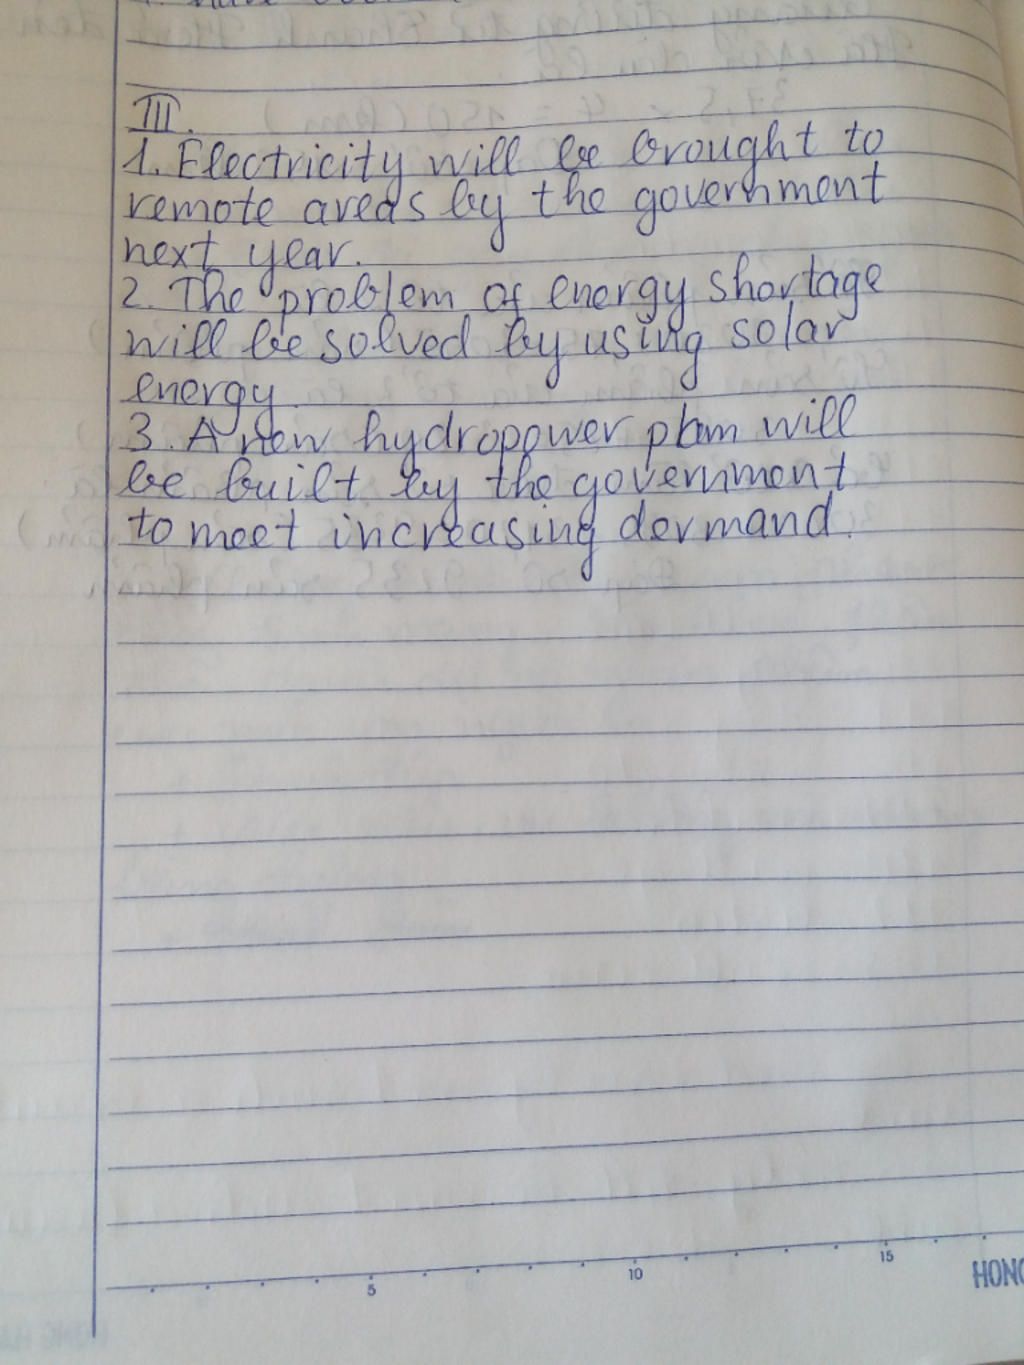 III.
1. Electricity will be brought to
remote areas by the government
next year.
2. The problem of energy shortage
will be solved by using solar
energy.
3. A new hydropower plam will
be built by the government
to meet increasing dermand.
5 10 15
HONG